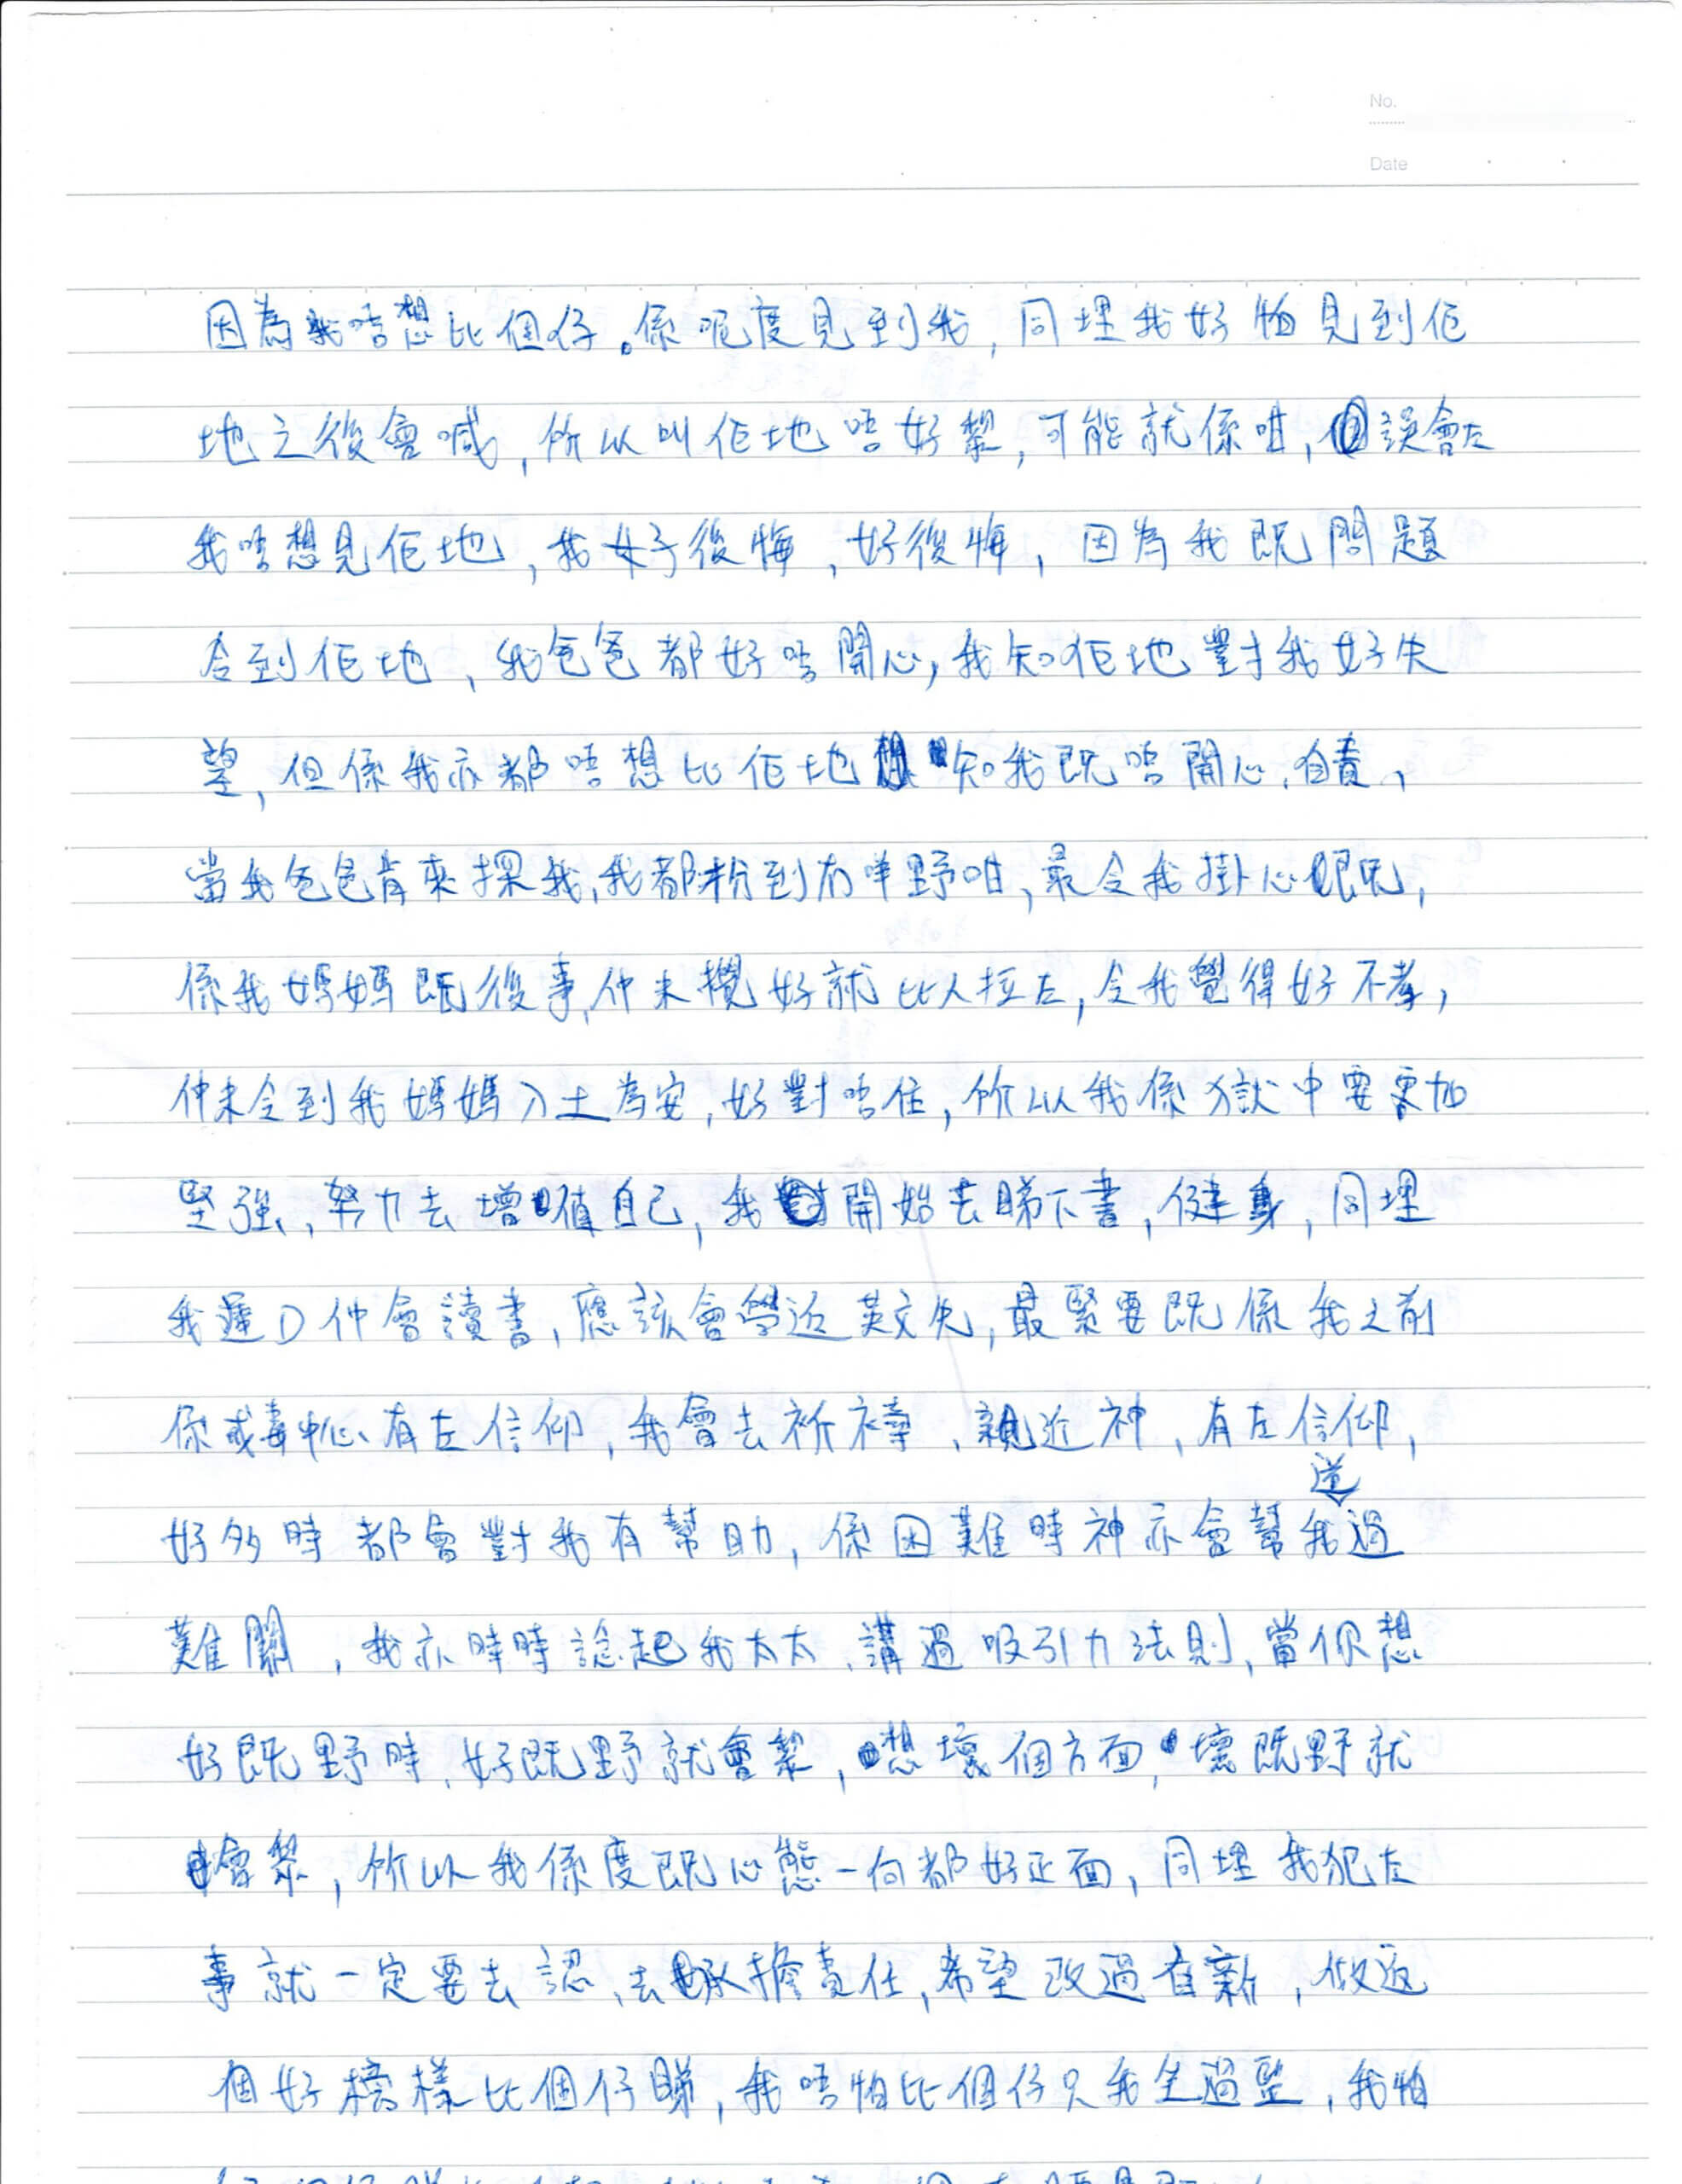 No.
Date
因為我唔想比個仔。係呢度見到我, 同埋我好怕見到佢
地之後會喊, 所以叫佢地唔好黎, 可能就係咁, 誤會左
我唔想見佢地, 我好後悔, 好後悔, 因為我既問題
令到佢地、我爸爸都好唔開心, 我知佢地對我好失
望, 但係我亦都唔想比佢地知我既唔開心、自責、
當我爸爸肯來探我, 我都粉到冇咩野咁, 最令我掛心既,
係我媽媽既後事, 仲未攪好就比人拉左, 令我覺得好不孝,
仲未令到我媽媽入土為安, 好對唔住, 所以我係獄中要更加
堅強、努力去增值自己, 我開始去睇下書, 健身, 同埋
我遲D仲會讀書, 應該會學返英文先, 最緊要既係我之前
係戒毒中心有左信仰, 我會去祈禱、親近神、有左信仰,
好多時都會對我有幫助, 係困難時神亦會幫我渡過
難關, 我亦時時諗起我太太、講過吸引力法則, 當你想
好既野時, 好既野就會黎, 想壞個方面, 壞既野就
會黎, 所以我係度既心態一向都好正面, 同埋我犯左
事就一定要去認、去承擔責任, 希望改過自新, 做返
個好榜樣比個仔睇, 我唔怕比個仔只我坐過監, 我怕